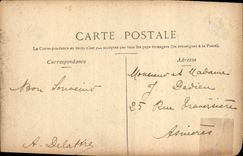 CARTE POSTALE
La Correspondance au recto n'est pas acceptée par tous les pays étrangers (Se renseigner à la Poste)
Correspondance
Adresse
Mon Souvenir
A. Delattre
Monsieur et Madame
J Dedieu
25 Rue Traversière
Asnières